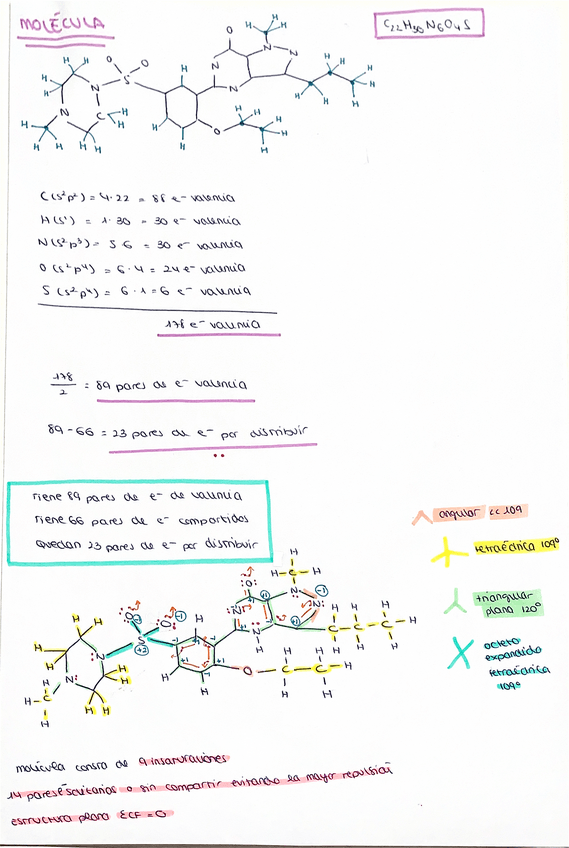 MOLÉCULA
C22H30N6O4S
C(s²p²) = 4·22 = 88 e⁻ valencia
H(s¹) = 1·30 = 30 e⁻ valencia
N(s²p³) = 5·6 = 30 e⁻ valencia
O(s²p⁴) = 6·4 = 24 e⁻ valencia
S(s²p⁴) = 6·1 = 6 e⁻ valencia
178 e⁻ valencia
178/2 = 89 pares de e⁻ valencia
89 - 66 = 23 pares de e⁻ por distribuir
Tiene 89 pares de e⁻ de valencia
Tiene 66 pares de e⁻ compartidos
Quedan 23 pares de e⁻ por distribuir
angular cc 109
tetraédrica 109º
triangular
plana 120º
octeto
expandido
tetraédrica
109º
molécula consta de 9 insaturaciones
14 pares solitarios o sin compartir evitando la mayor repulsión
estructura plana ECF = 0